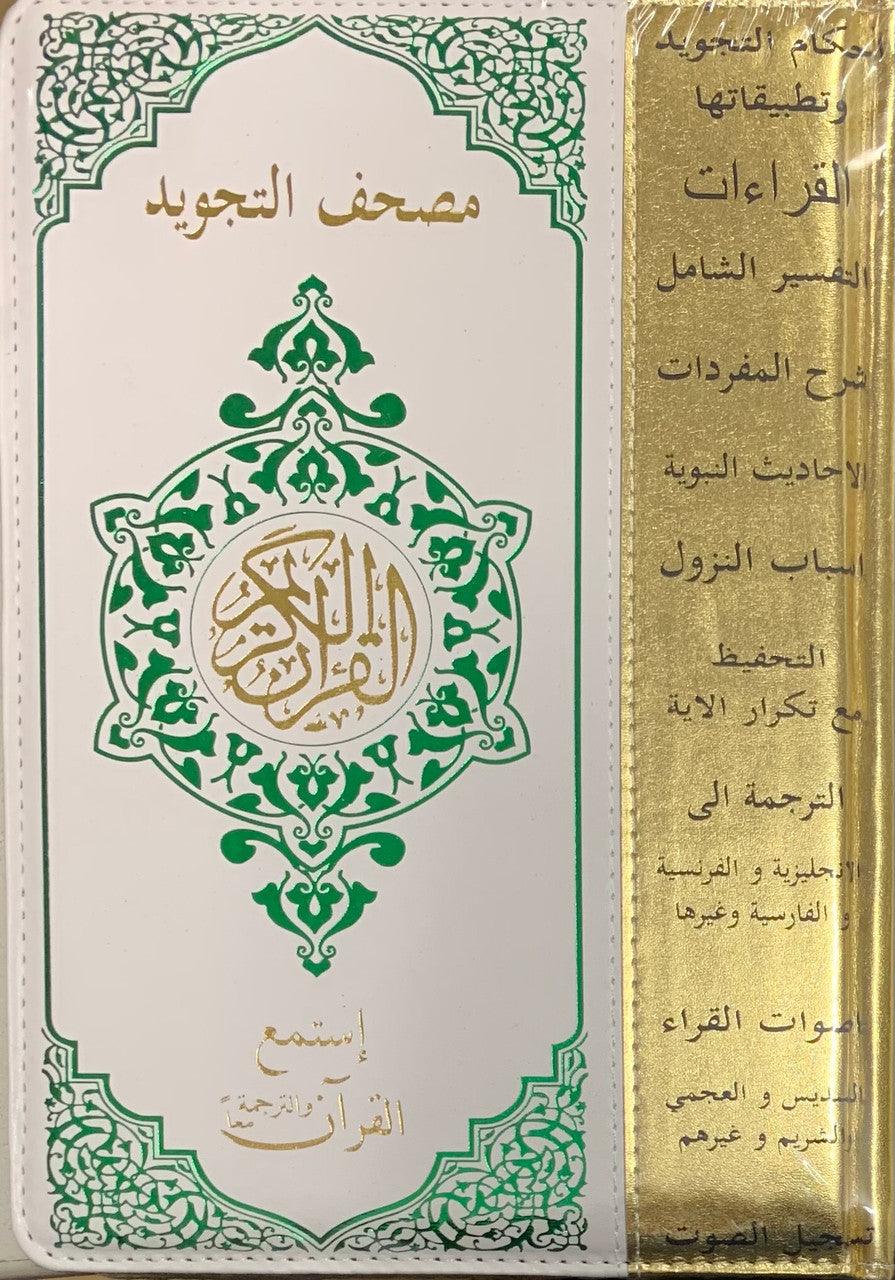 مصحف التجويد
القرآن الكريم
إستمع
القرآن والترجمة
معاً
احكام التجويد
وتطبيقاتها
القراءات
التفسير الشامل
شرح المفردات
الاحاديث النبوية
اسباب النزول
التحفيظ
مع تكرار الاية
الترجمة الى
الانجليزية و الفرنسية
و الفارسية وغيرها
اصوات القراء
السديس و العجمي
والشريم و غيرهم
تسجيل الصوت